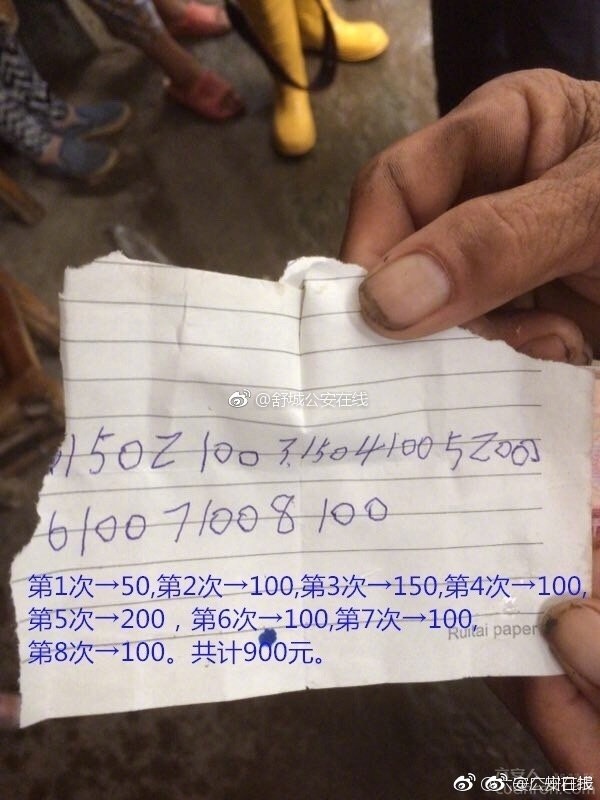 @舒城公安在线
1502 100 3.150 4100 5200
6100 7100 8 100
第1次→50,第2次→100,第3次→150,第4次→100,
第5次→200，第6次→100,第7次→100,
Ruitai paper
第8次→100。共计900元。
@广州日报